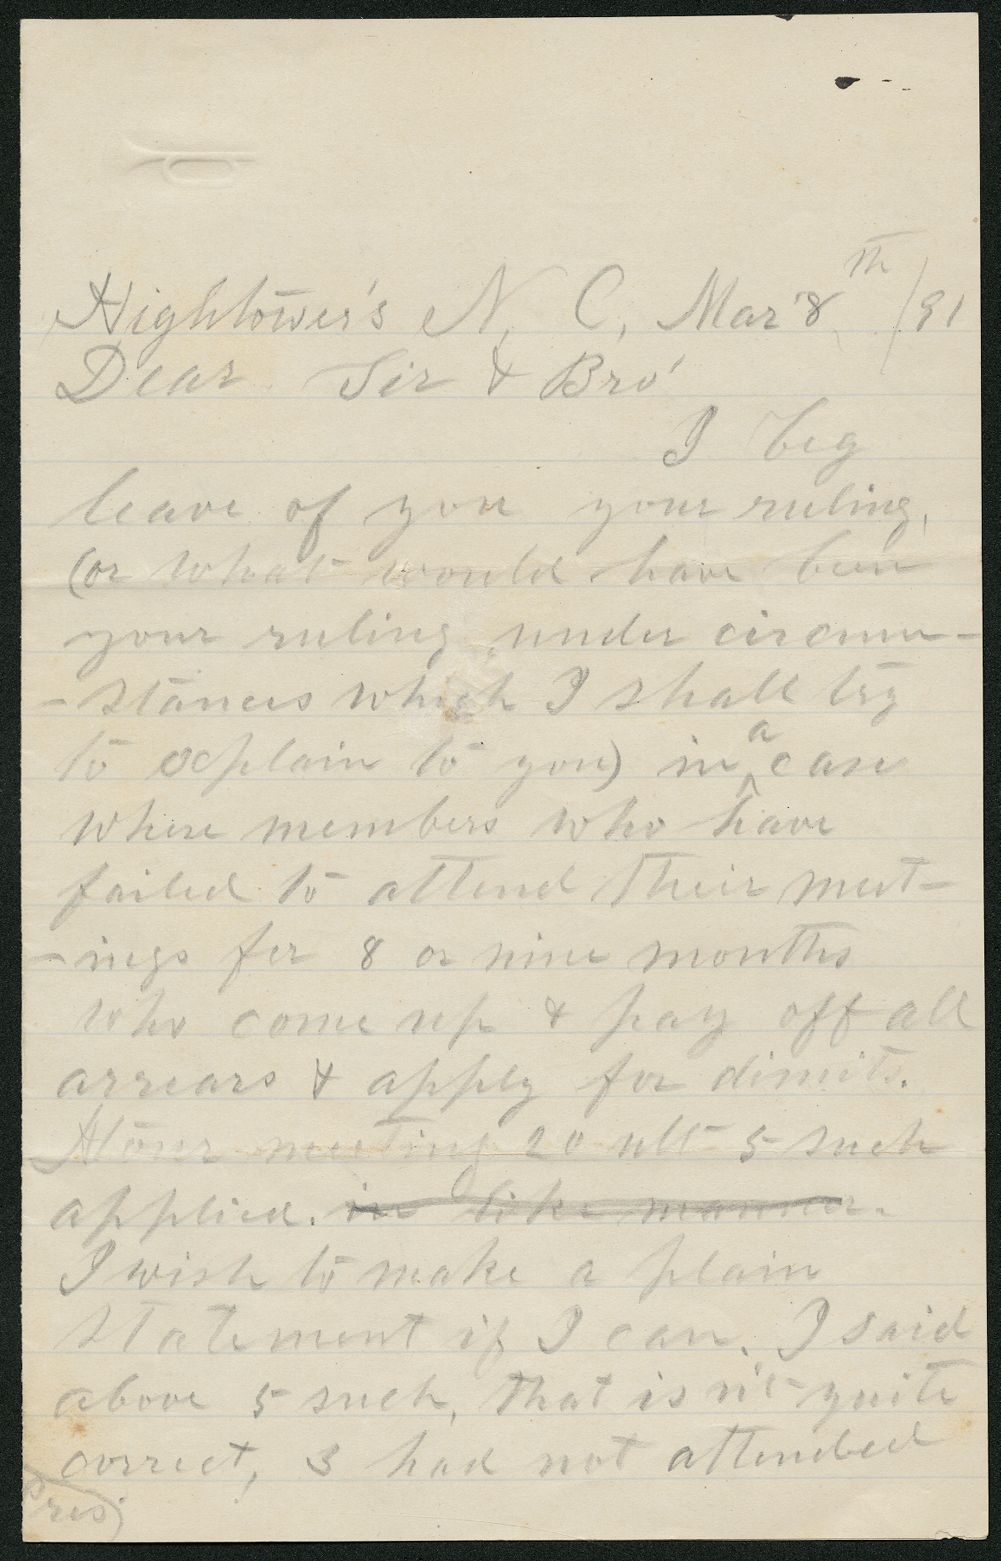 Hightower's N. C. Mar 8th /91
Dear Sir & Bro'
I beg
leave of you your ruling,
(or what would have been
your ruling under circum-
-stances which I shall try
to explain to you) in a case
where members who have
failed to attend their meet-
-ings for 8 or nine months
who come up & pay off all
arrears & apply for dimits.
At our meeting 20 ult 5 such
applied. in like manner.
I wish to make a plain
statement if I can. I said
above 5 such, that isn't quite
correct, 3 had not attended